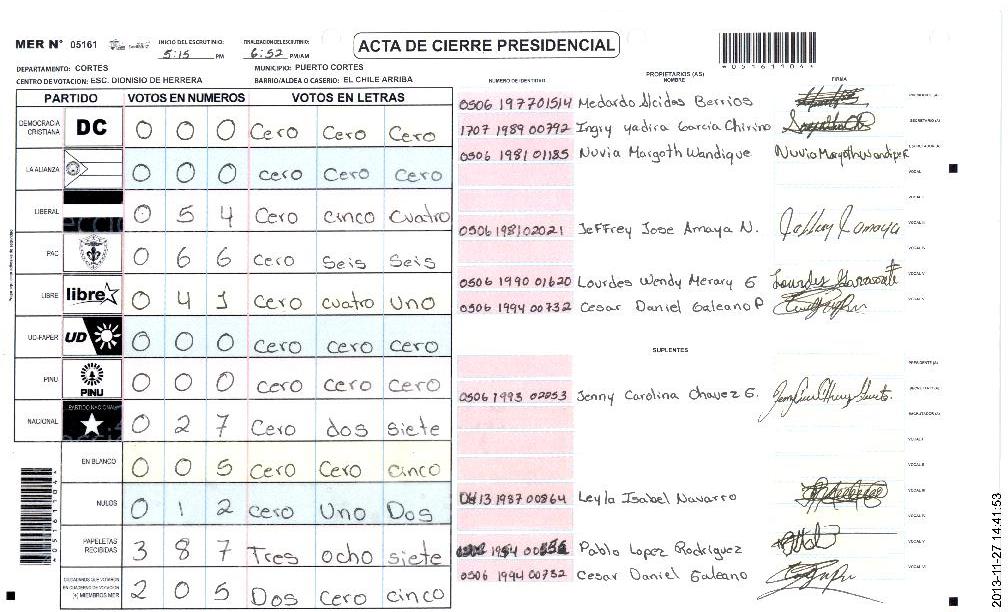 MER N° 05161 INICIO DEL ESCRUTINIO: 5:15 PM FINALIZACION DEL ESCRUTINIO: 6:52 PM/AM ACTA DE CIERRE PRESIDENCIAL
*051611044*
DEPARTAMENTO: CORTES MUNICIPIO: PUERTO CORTES
CENTRO DE VOTACION: ESC. DIONISIO DE HERRERA BARRIO/ALDEA O CASERIO: EL CHILE ARRIBA
PARTIDO VOTOS EN NUMEROS VOTOS EN LETRAS
DEMOCRACIA CRISTIANA DC 0 0 0 Cero Cero Cero
LA ALIANZA 0 0 0 cero Cero cero
LIBERAL 0 5 4 Cero cinco cuatro
PAC 0 6 6 cero Seis Seis
LIBRE libre 0 4 1 Cero cuatro Uno
UD-FAPER UD 0 0 0 cero cero cero
PINU PINU 0 0 0 cero cero cero
NACIONAL PARTIDO NACIONAL 0 2 7 Cero dos siete
EN BLANCO 0 0 5 Cero Cero cinco
NULOS 0 1 2 cero Uno Dos
PAPELETAS RECIBIDAS 3 8 7 Tres ocho siete
CIUDADANOS QUE VOTARON EN CUADERNO DE VOTACION (+) MIEMBROS MER 2 0 5 Dos cero cinco
NUMERO DE IDENTIDAD PROPIETARIOS (AS) NOMBRE FIRMA
0506 197701514 Medardo Alcidas Berrios PRESIDENTE (A)
1707 1989 00792 Ingry yadira Garcia Chirino SECRETARIO (A)
0506 1981 01185 Nuvia Margoth Wandique Nuvia Margoth Wandique ESCRUTADOR (A)
VOCAL
VOCAL II
0506 198102021 Jeffrey Jose Amaya N. VOCAL III
VOCAL IV
0506 1990 01620 Lourdes Wendy Merary G VOCAL V
0506 1994 00732 Cesar Daniel Galeano P
SUPLENTES
PRESIDENTE (A)
0506 1993 02053 Jenny Carolina Chavez G. SECRETARIO (A)
ESCRUTADOR (A)
VOCAL I
VOCAL II
13 1987 00864 Leyla Isabel Navarro VOCAL III
VOCAL IV
Pablo Lopez Rodriguez VOCAL V
0506 1994 00732 Cesar Daniel Galeano VOCAL VI
*051611044*
2013-11-27 14:41:53